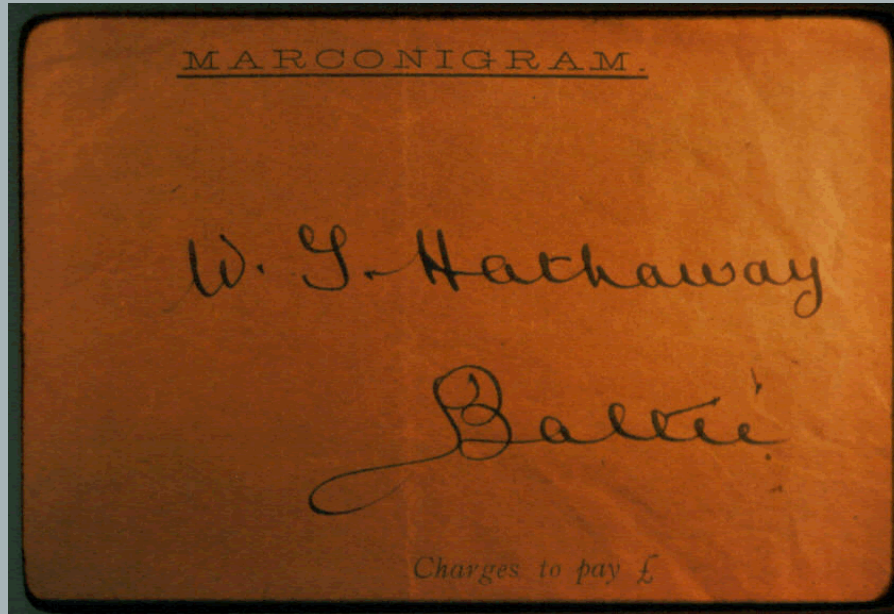 MARCONIGRAM.
W. T. Hathaway
Baltic
Charges to pay £